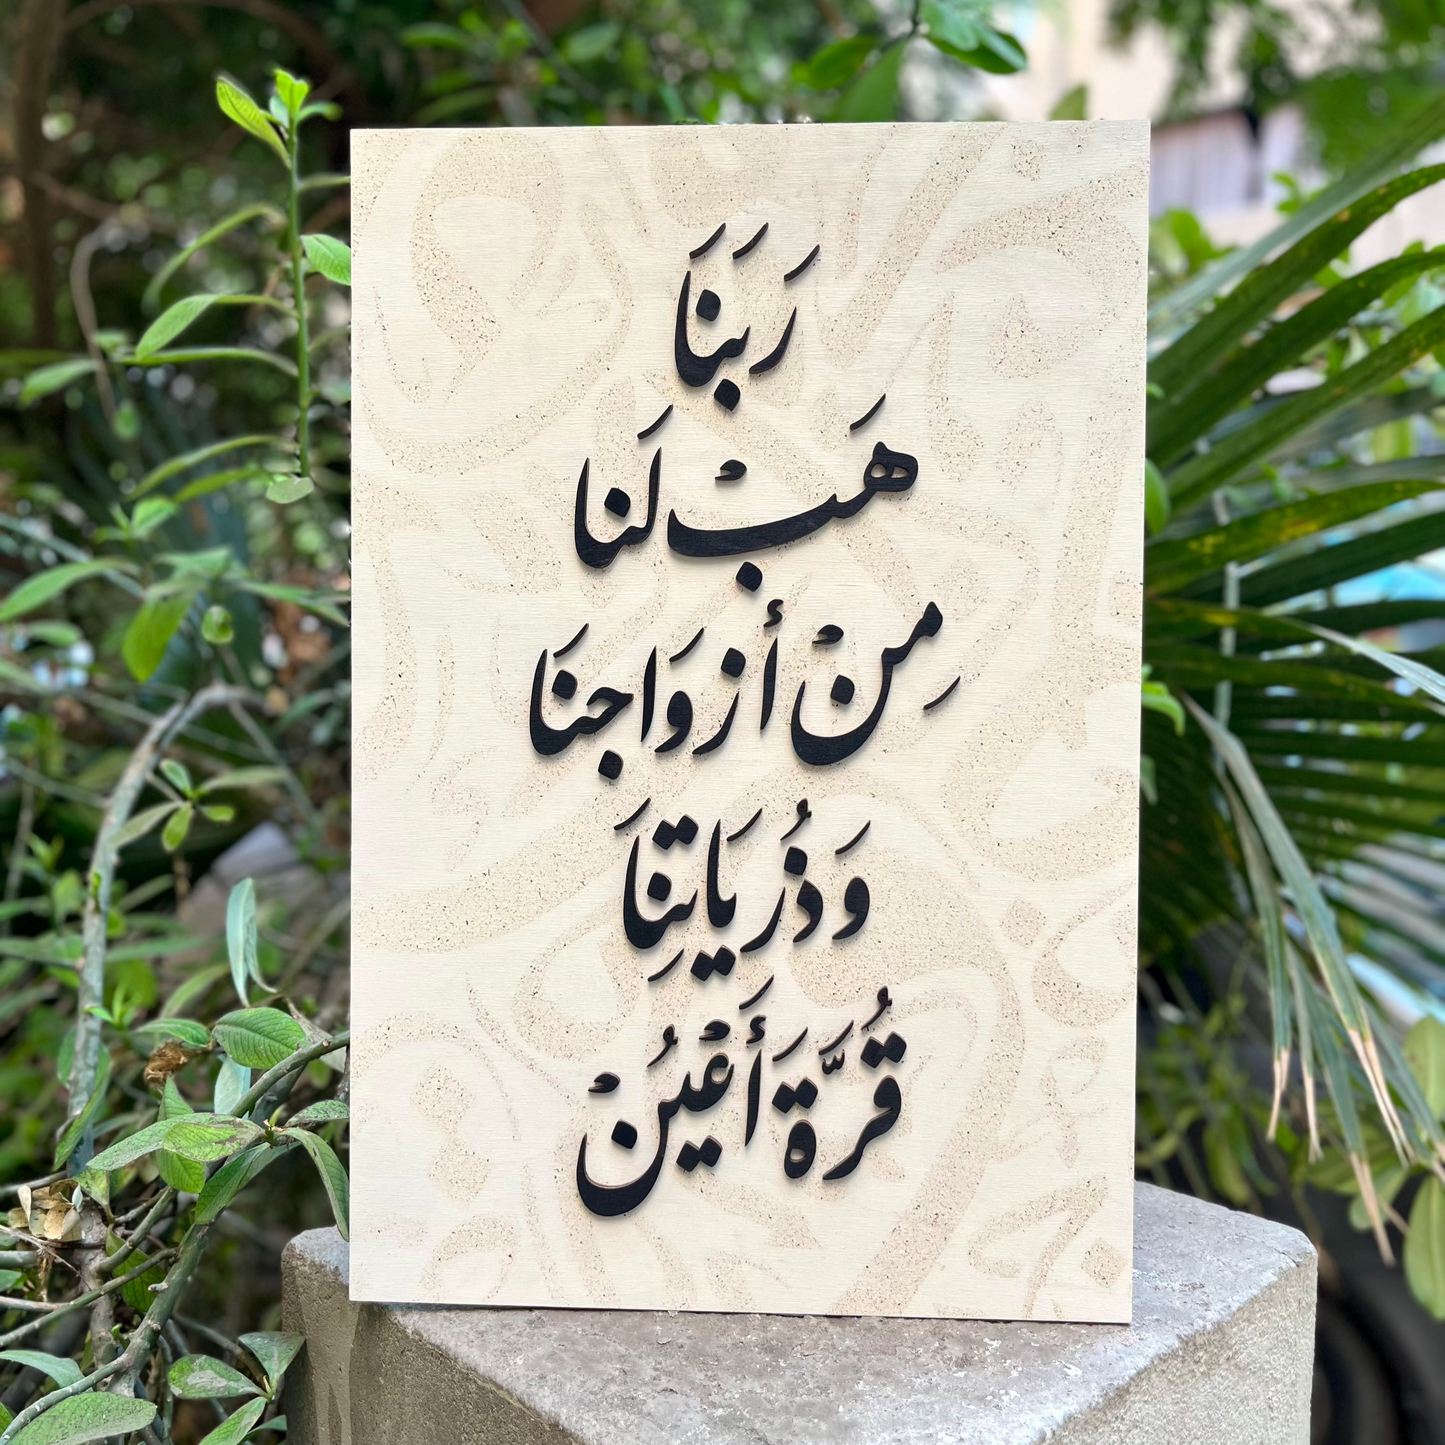 رَبَنَا
هَبْ لَنا
مِنْ أزوَاجنَا
وَذُريَاتِنَا
قُرَّةَ أَعْيُنْ